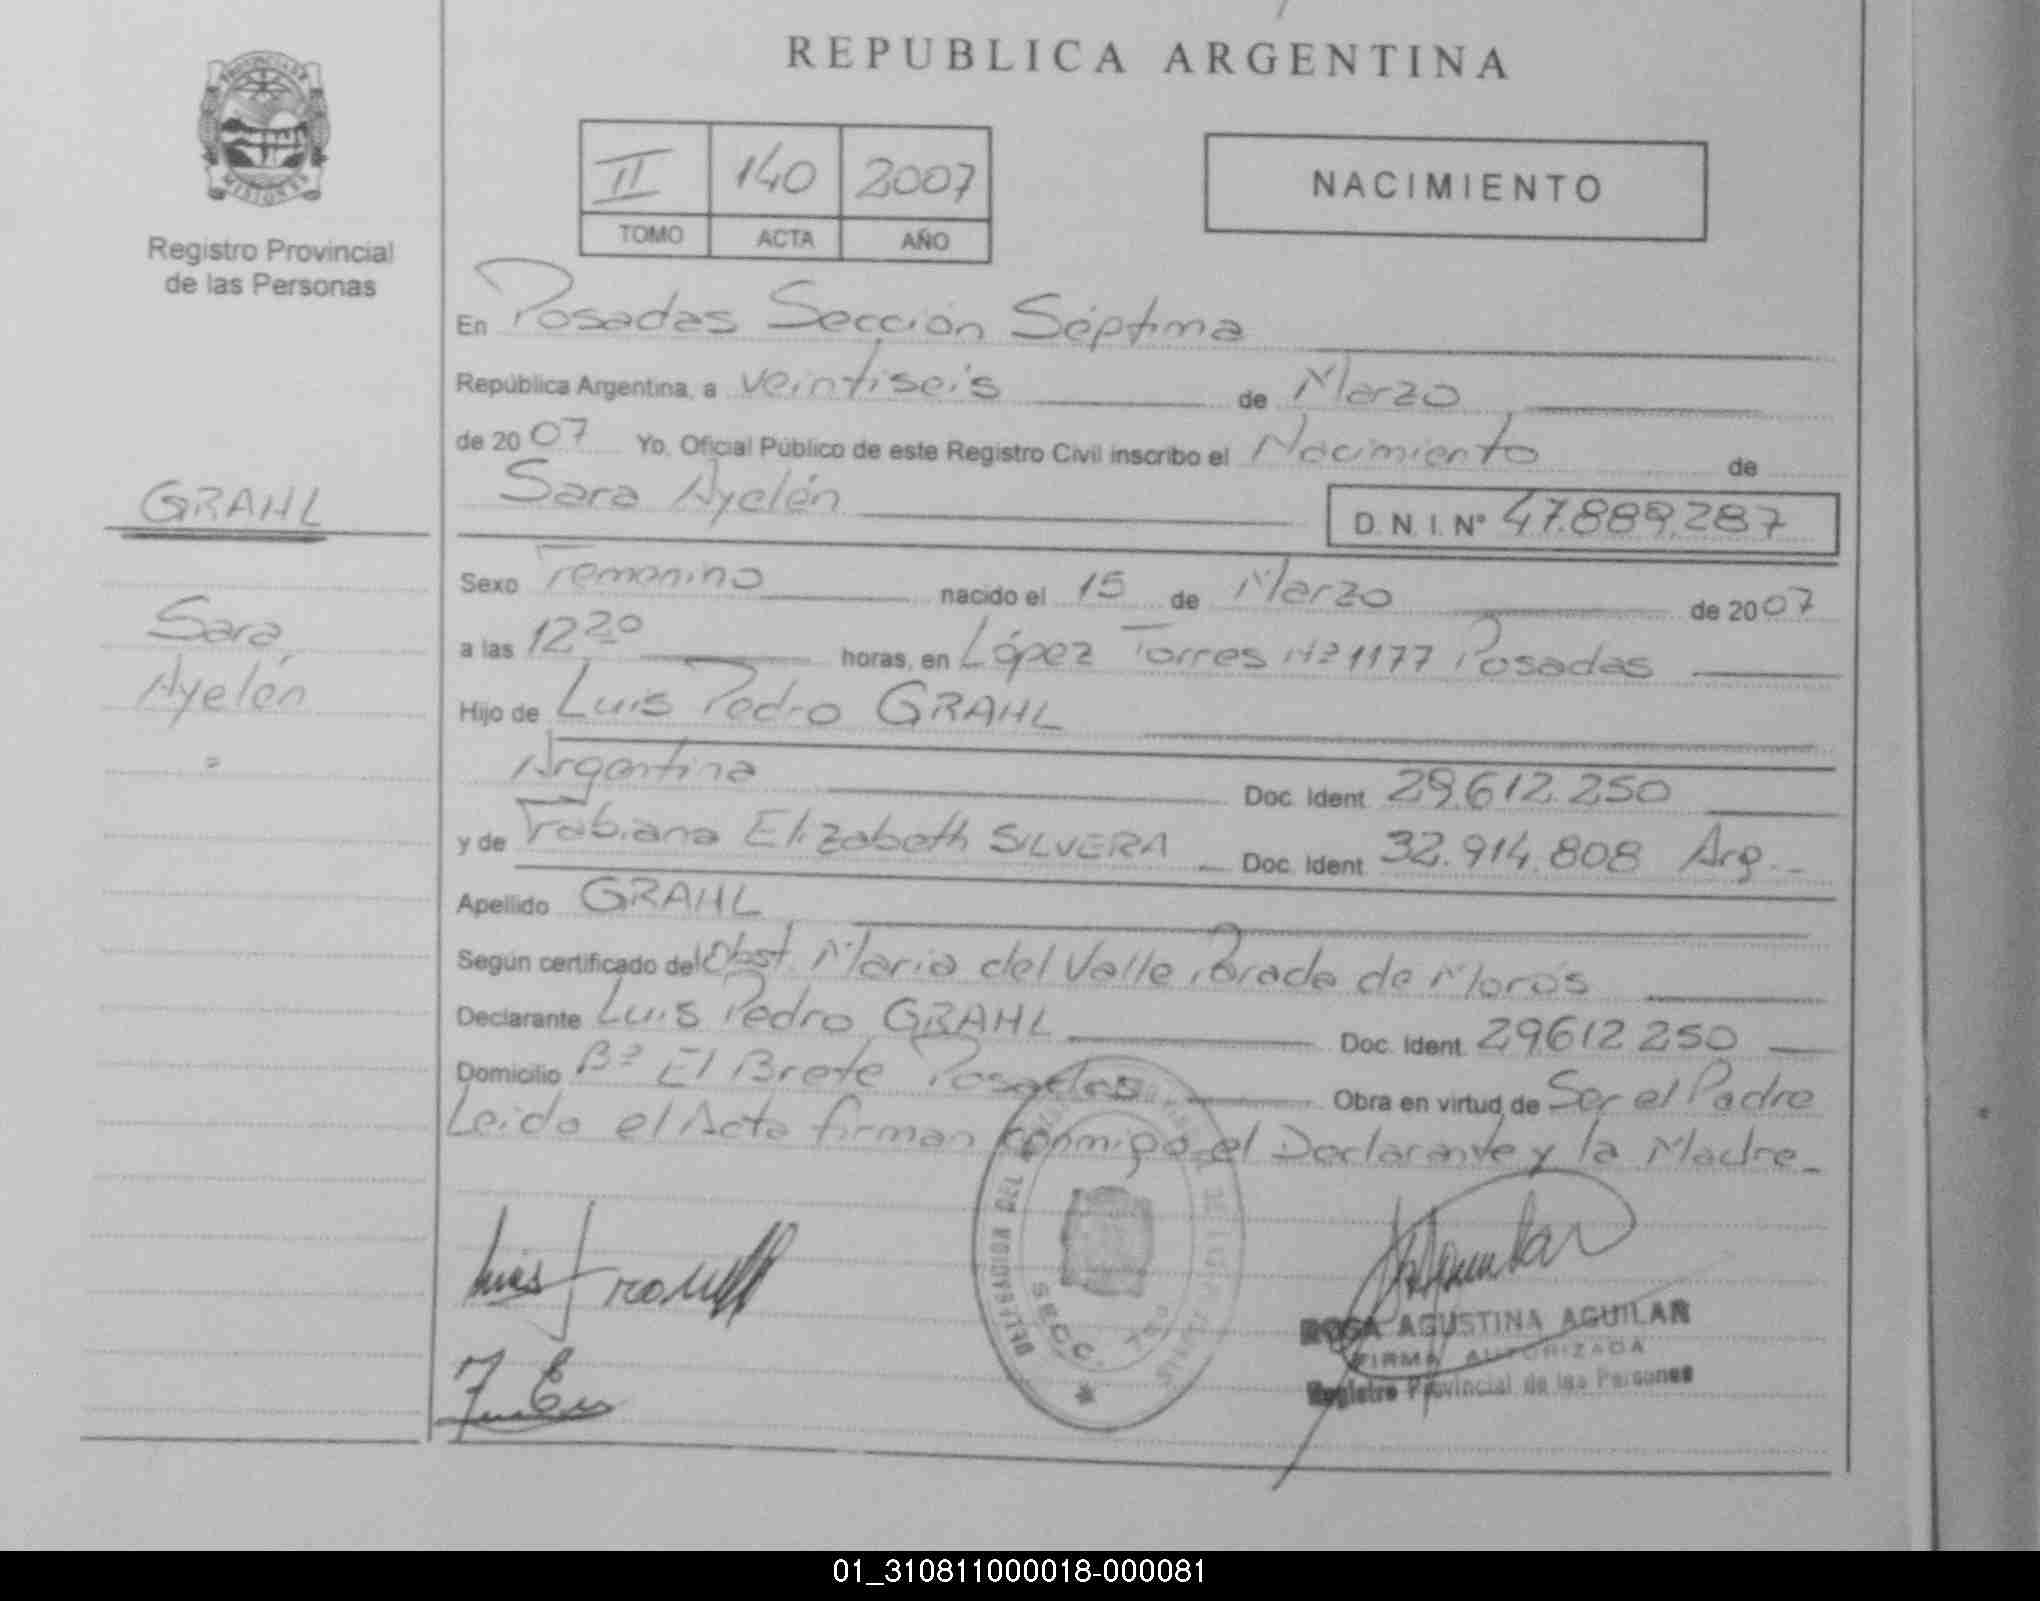 REPUBLICA ARGENTINA
MISIONES
Registro Provincial
de las Personas
II 140 2007
TOMO ACTA AÑO
NACIMIENTO
En Posadas Sección Séptima
República Argentina, a veintiseis de Marzo
de 2007 Yo, Oficial Público de este Registro Civil inscribo el Nacimiento de
Sara Ayelén D.N.I. Nº 47.889.287
GRAHL
Sara
Ayelén
Sexo Femenino nacido el 15 de Marzo de 2007
a las 12 20 horas, en López Torres Nº 1177 Posadas
Hijo de Luis Pedro GRAHL
Argentina Doc. Ident. 29.612.250
y de Fabiana Elizabeth SILVERA Doc. Ident. 32.914.808 Arg.
Apellido GRAHL
Según certificado del Obst. Maria del Valle Parada de
Declarante Luis Pedro GRAHL Doc. Ident. 29612250
Domicilio Bº El Brete Posadas Obra en virtud de Ser el Padre
Leido el Acta firman conmigo el Declarante y la Madre
SECC. 7
ROSA AGUSTINA AGUILAR
FIRMA AUTORIZADA
Registro Provincial de las Personas
01_310811000018-000081